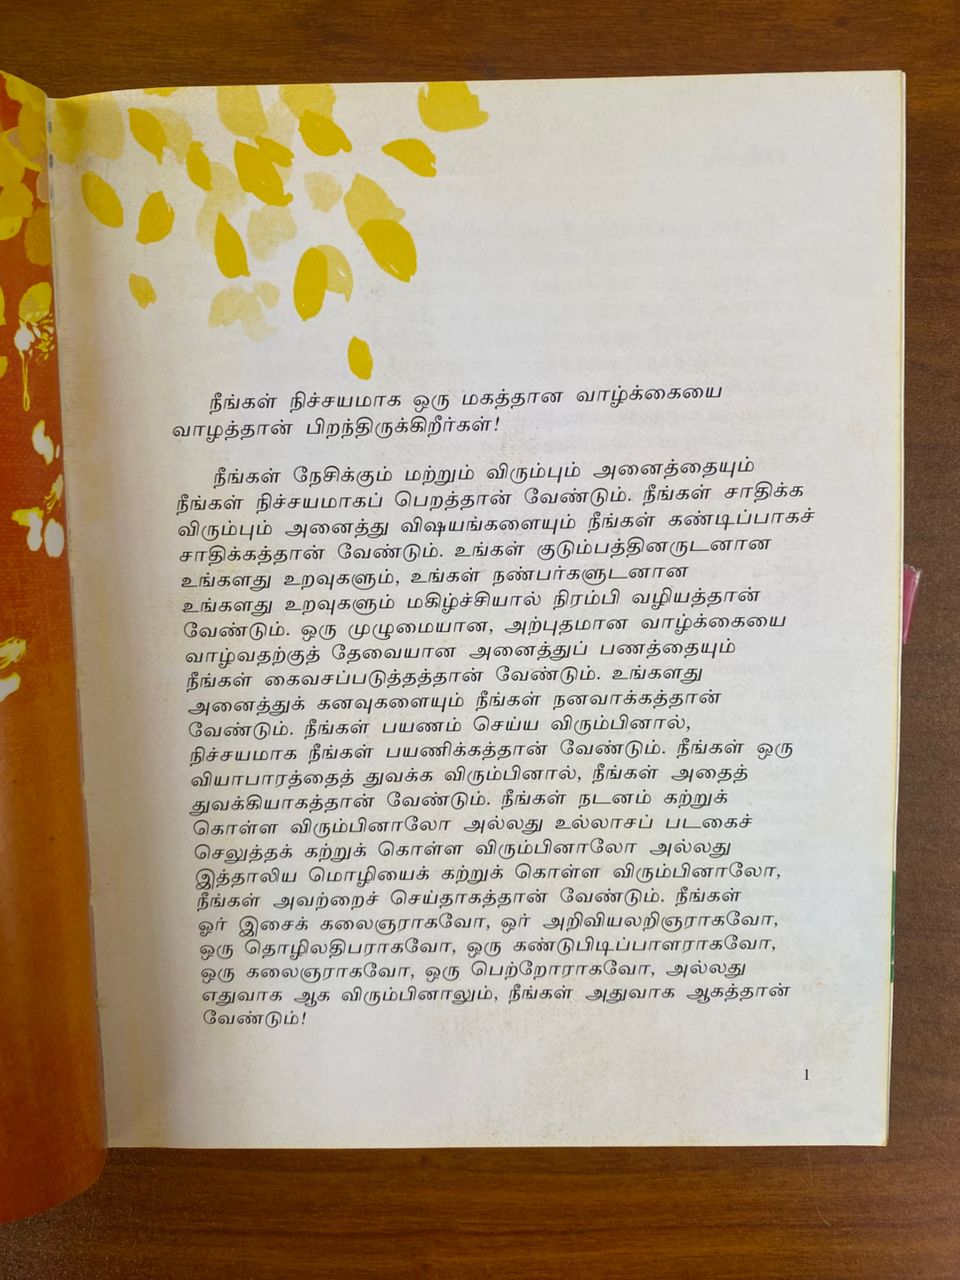 நீங்கள் நிச்சயமாக ஒரு மகத்தான வாழ்க்கையை
வாழத்தான் பிறந்திருக்கிறீர்கள்!
நீங்கள் நேசிக்கும் மற்றும் விரும்பும் அனைத்தையும்
நீங்கள் நிச்சயமாகப் பெறத்தான் வேண்டும். நீங்கள் சாதிக்க
விரும்பும் அனைத்து விஷயங்களையும் நீங்கள் கண்டிப்பாகச்
சாதிக்கத்தான் வேண்டும். உங்கள் குடும்பத்தினருடனான
உங்களது உறவுகளும், உங்கள் நண்பர்களுடனான
உங்களது உறவுகளும் மகிழ்ச்சியால் நிரம்பி வழியத்தான்
வேண்டும். ஒரு முழுமையான, அற்புதமான வாழ்க்கையை
வாழ்வதற்குத் தேவையான அனைத்துப் பணத்தையும்
நீங்கள் கைவசப்படுத்தத்தான் வேண்டும். உங்களது
அனைத்துக் கனவுகளையும் நீங்கள் நனவாக்கத்தான்
வேண்டும். நீங்கள் பயணம் செய்ய விரும்பினால்,
நிச்சயமாக நீங்கள் பயணிக்கத்தான் வேண்டும். நீங்கள் ஒரு
வியாபாரத்தைத் துவக்க விரும்பினால், நீங்கள் அதைத்
துவக்கியாகத்தான் வேண்டும். நீங்கள் நடனம் கற்றுக்
கொள்ள விரும்பினாலோ அல்லது உல்லாசப் படகைச்
செலுத்தக் கற்றுக் கொள்ள விரும்பினாலோ அல்லது
இத்தாலிய மொழியைக் கற்றுக் கொள்ள விரும்பினாலோ,
நீங்கள் அவற்றைச் செய்தாகத்தான் வேண்டும். நீங்கள்
ஓர் இசைக் கலைஞராகவோ, ஓர் அறிவியலறிஞராகவோ,
ஒரு தொழிலதிபராகவோ, ஒரு கண்டுபிடிப்பாளராகவோ,
ஒரு கலைஞராகவோ, ஒரு பெற்றோராகவோ, அல்லது
எதுவாக ஆக விரும்பினாலும், நீங்கள் அதுவாக ஆகத்தான்
வேண்டும்!
1